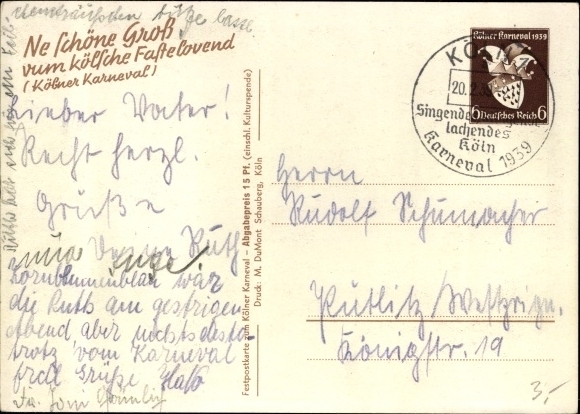 Ne schöne Groß
vum kölsche Fastelovend
(Kölner Karneval)
Lieber Vater!
Recht herzl.
Grüße
Deine Ruth
Kornblumenblau war
die Ruth am gestrigen
Abend, aber nichtsdesto
trotz, vom Karneval
frdl Grüße
Festpostkarte zum Kölner Karneval – Abgabepreis 15 Pf. (einschl. Kulturspende)
Druck: M. DuMont Schauberg, Köln
Kölner Karneval 1939
6 Deutsches Reich 6
KÖLN
20.2.
Singendes
lachendes
Köln
Karneval 1939
Herrn
Rudolf Schumacher
Putlitz Westprign.
Königstr. 19
3,-